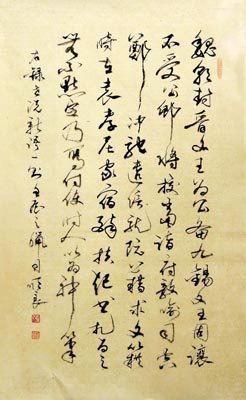 魏朝封晉文王為公備九錫文王固讓
不受公卿將校當詣府敦喻司空
鄭沖馳遣信就阮籍求文籍
時在袁孝尼家宿醉扶起書札為之
無所點定乃寫付使時人以為神筆
右錄世說新語一則壬辰之順良